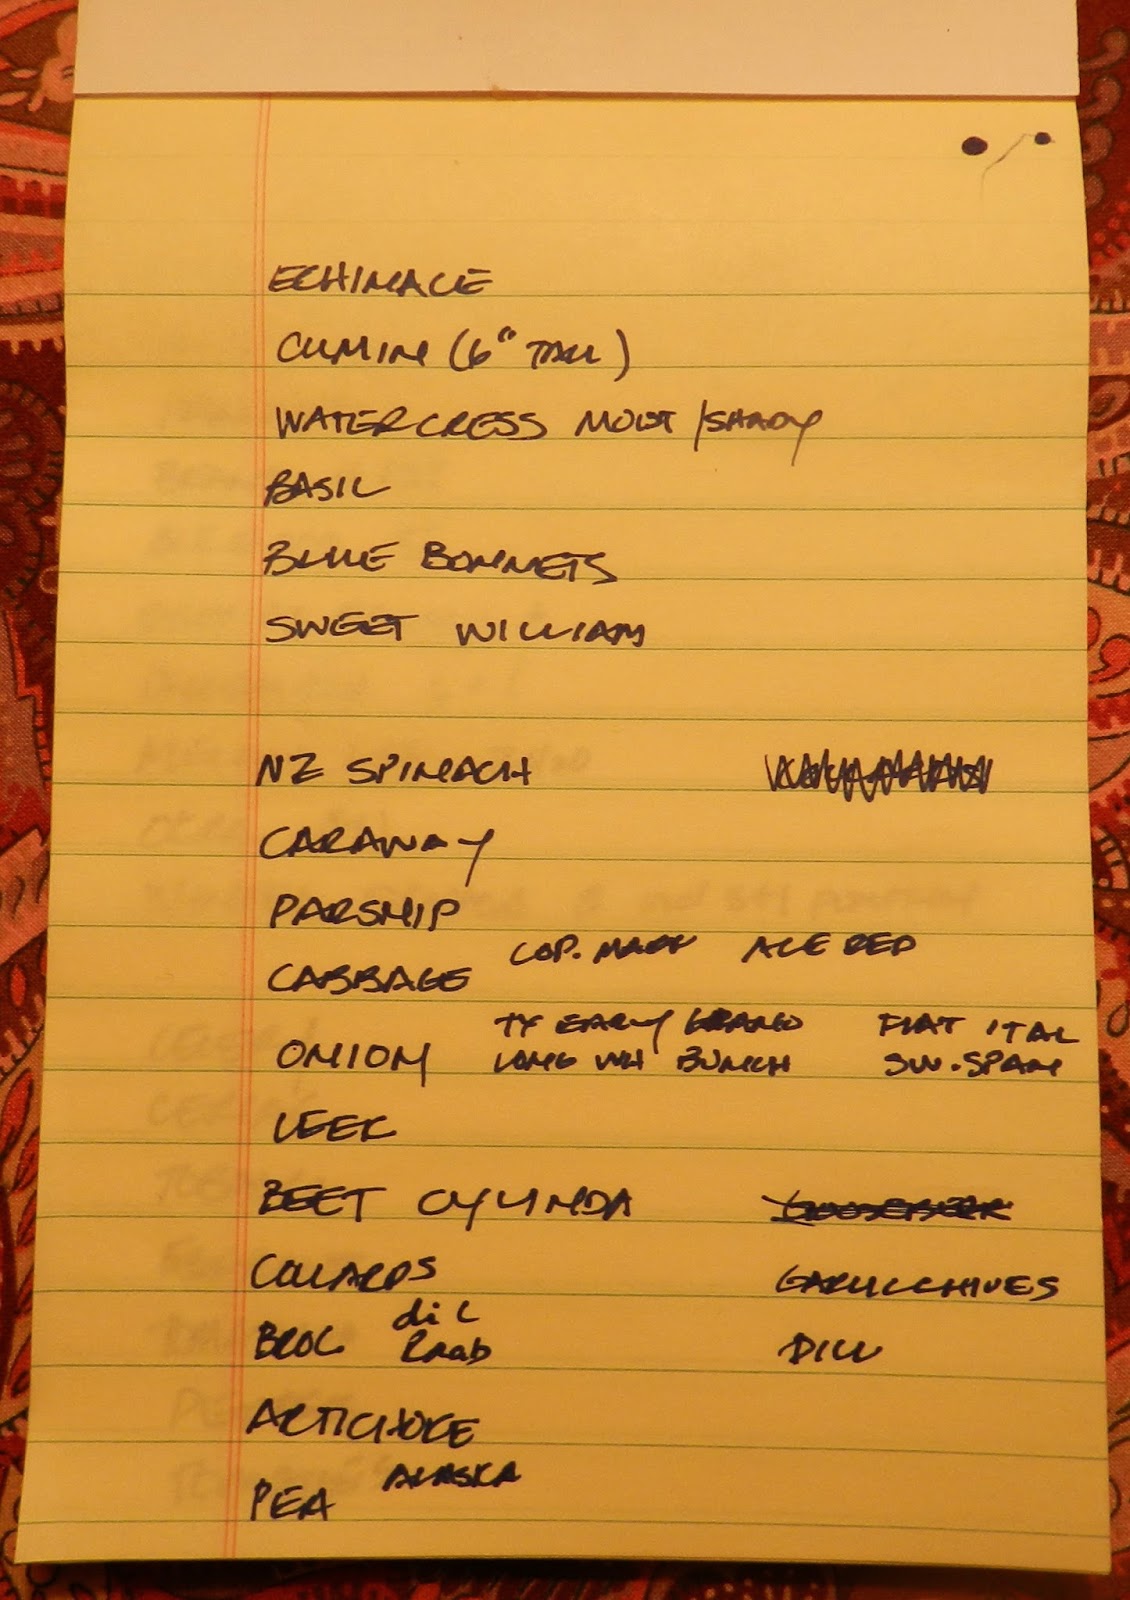 ECHINACE
CUMIN (6" TALL)
WATERCRESS MOIST/SHADY
BASIL
BLUE BONNETS
SWEET WILLIAM
NZ SPINACH
CARAWAY
PARSNIP
CABBAGE COP. MARK ACE RED
ONION TX EARLY GRANO FLAT ITAL
LONG WH BUNCH SW. SPAN
LEEK
BEET CYLINDA
COLLARDS GARLIC CHIVES
BROC di C Raab DILL
ARTICHOKE
PEA ALASKA